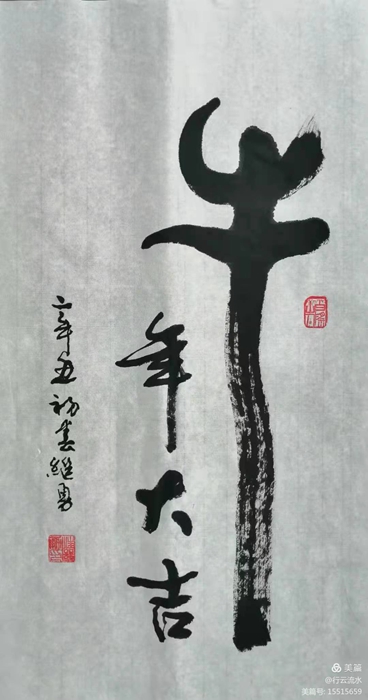 牛
年大吉
辛丑初春继勇
美篇
@行云流水
美篇号: 15515659